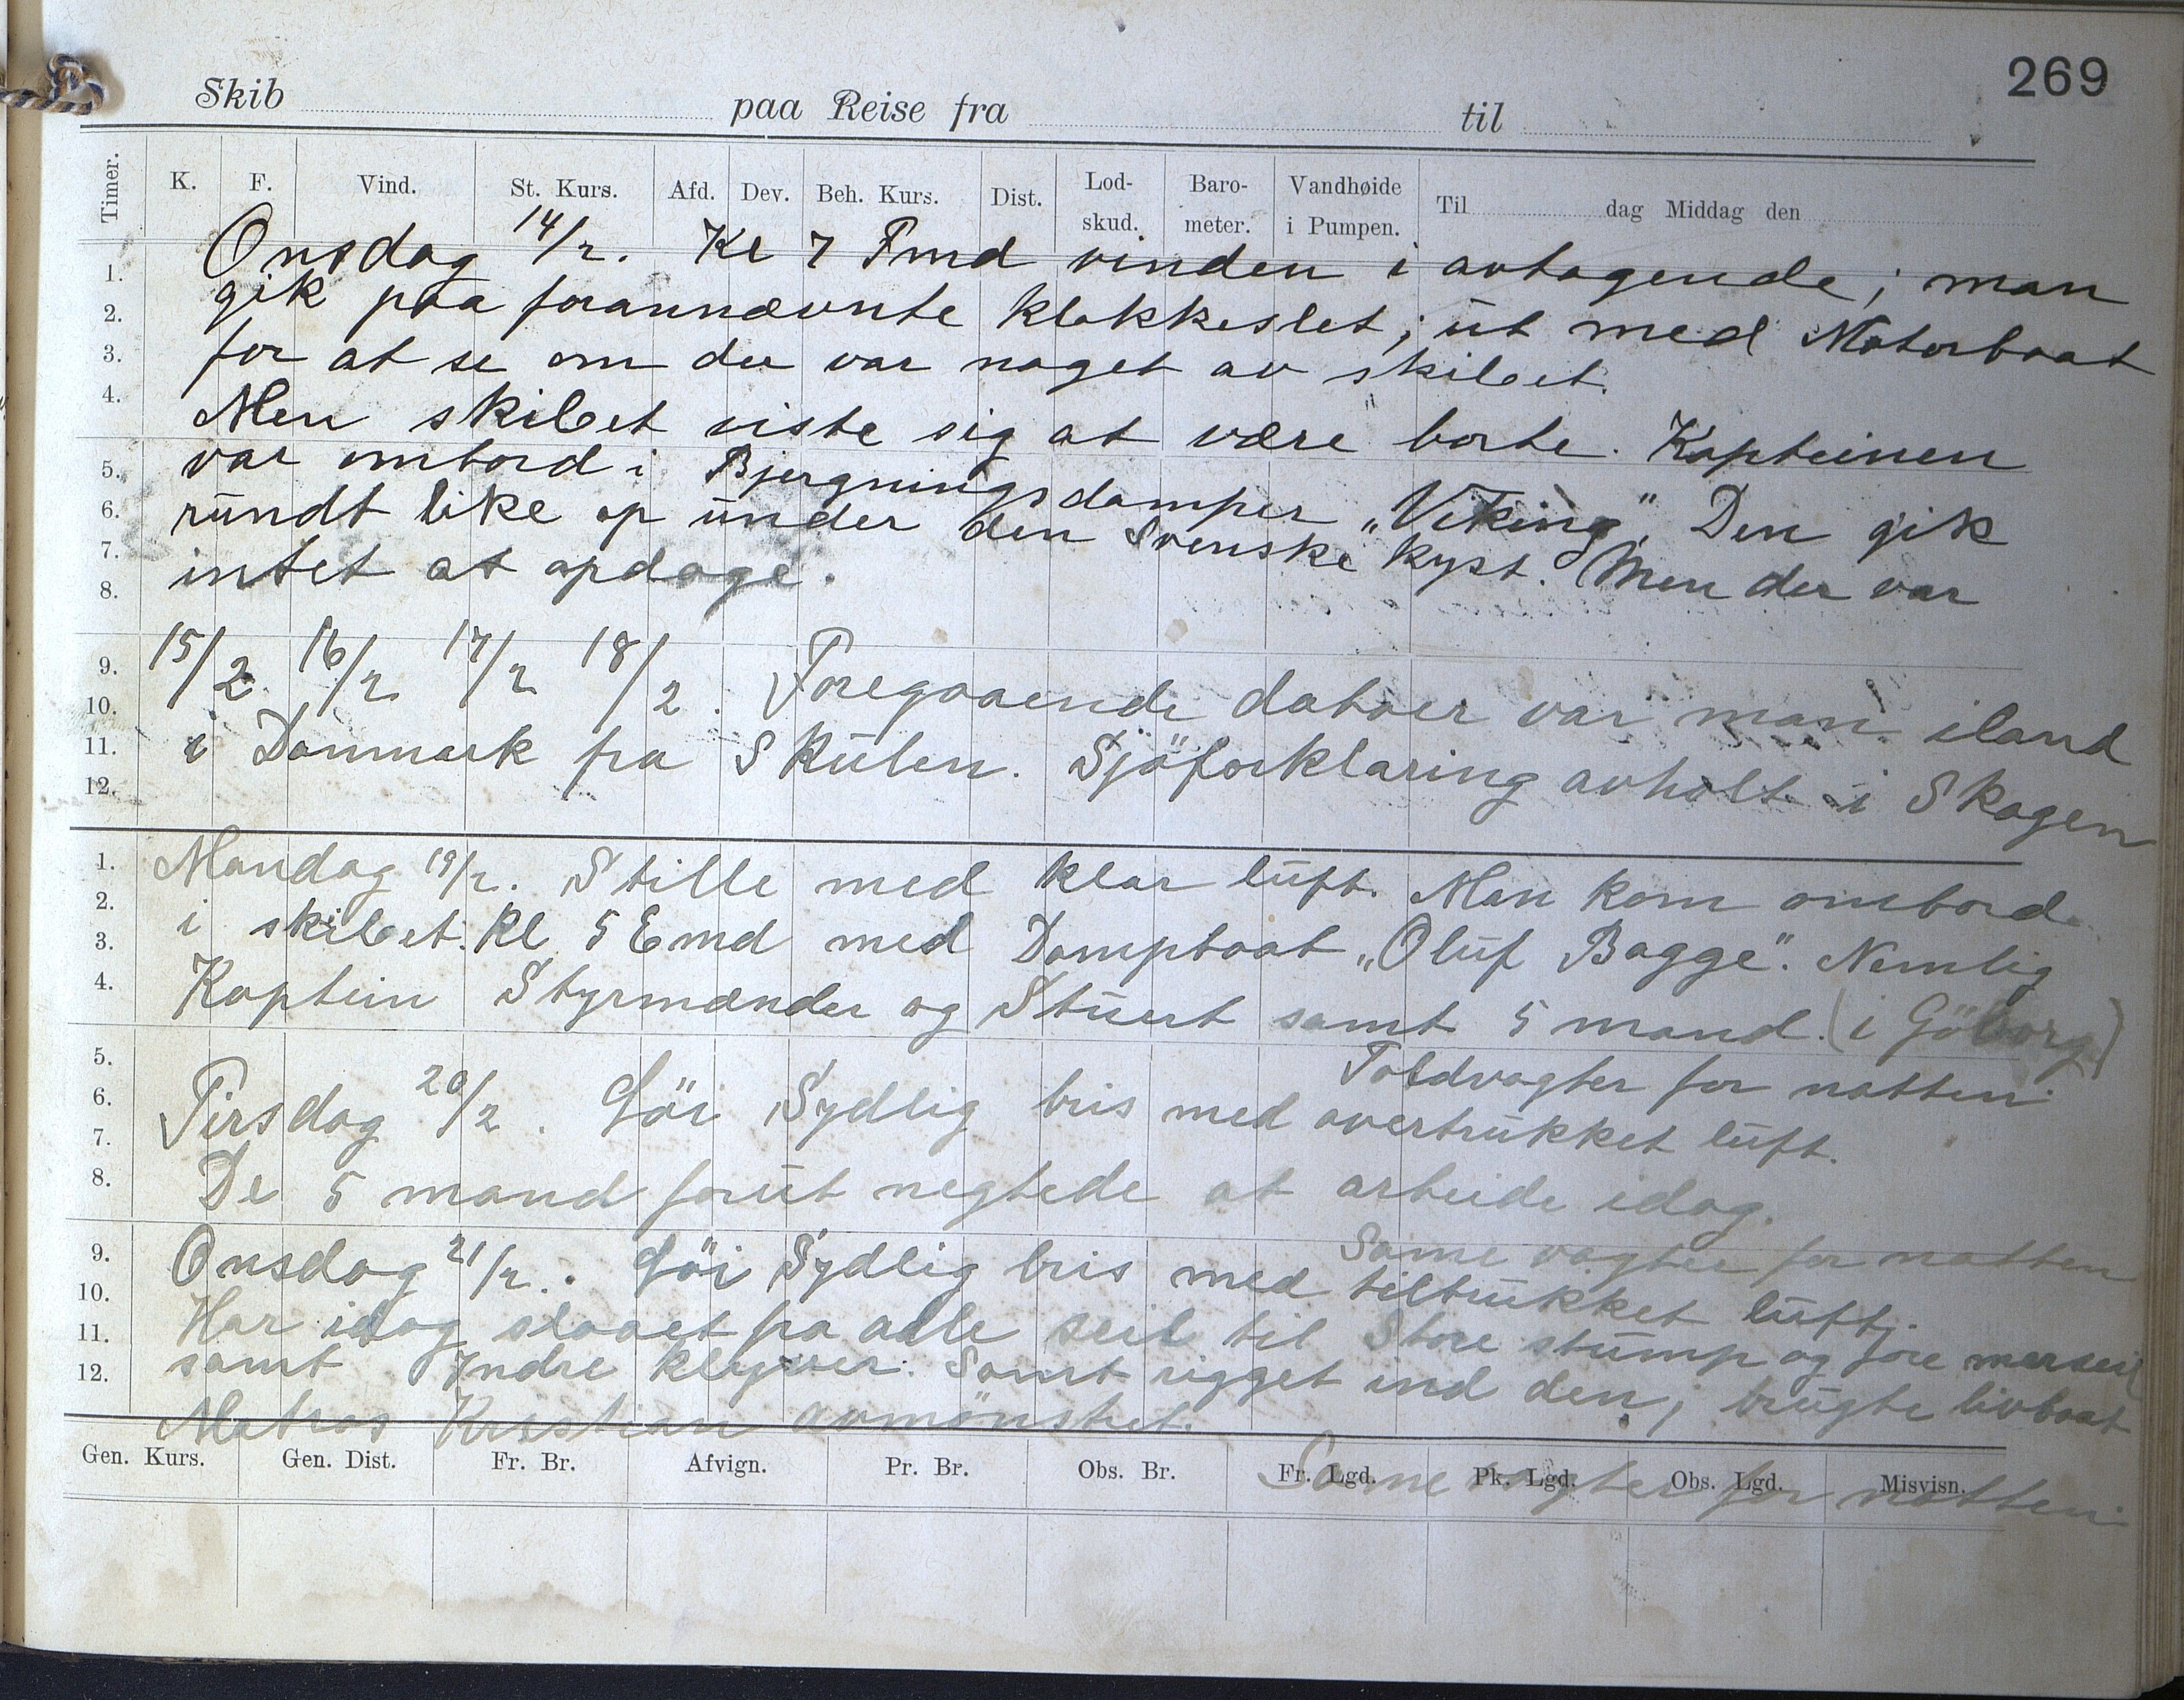 269
Skib paa Reise fra til
Timer. K. F. Vind. St. Kurs. Afd. Dev. Beh. Kurs. Dist. Lod-skud. Baro-meter. Vandhøide i Pumpen. Til dag Middag den
1. Onsdag 14/2. Kl 7 Fmd vinden i avtagende; man
2. gik paa forannævnte klokkeslet; ut med Motorbaat
3. for at se om der var noget av skibet.
4. Men skibet viste sig at være borte. Kapteinen
5. var ombord i Bjergningsdamper „Viking". Den gik
6. rundt like op under den Svenske kyst. Men der var
7. intet at opdage.
8.
9. 15/2. 16/2 17/2 18/2. Foregaaende datoer var man iland
10.
11. i Danmark fra Skuten. Sjöforklaring avholt i Skagen
12.
1. Mandag 19/2. Stille med klar luft. Man kom ombord
2. i skibet. Kl 5 Emd med Dampbaat „Oluf Bagge". Nemlig
3.
4. Kaptein Styrmænder og Stuert samt 5 mand. (i Göborg)
5. Toldvagter for natten.
6. Tirsdag 20/2. Löi Sydlig bris med overtrukket luft.
7.
8. De 5 mand forut negtede at arbeide idag.
Same vagter for natten
9. Onsdag 21/2. Löi Sydlig bris med tiltrukket luft.
10.
11. Har idag slaaet fra alle seil til Store stump og fore merseil
12. samt Indre klyver. Samt rigget ind den; brugte livbaat
Matros Kristian avmönstret.
Same vagter for natten.
Gen. Kurs. Gen. Dist. Fr. Br. Afvign. Pr. Br. Obs. Br. Fr. Lgd. Pk. Lgd. Obs. Lgd. Misvisn.